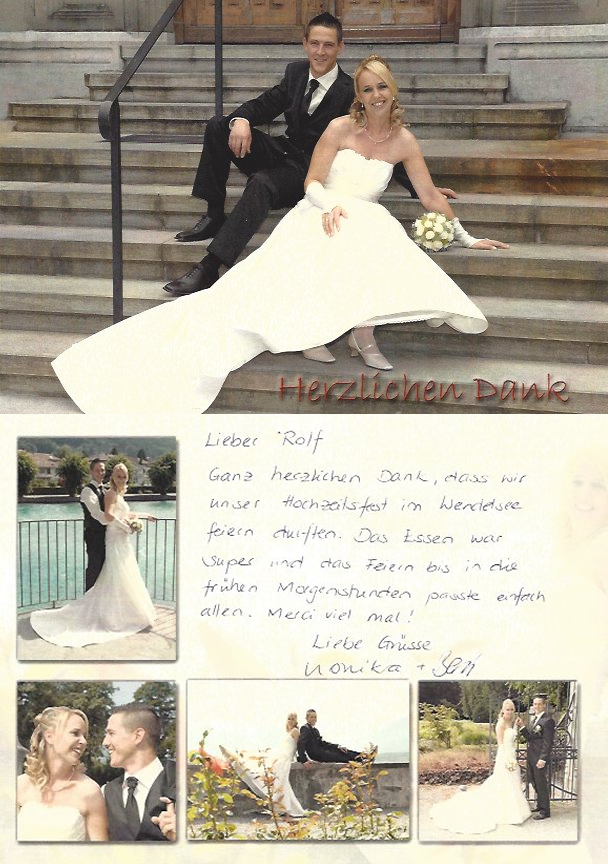 Herzlichen Dank
Lieber Rolf
Ganz herzlichen Dank, dass wir
unser Hochzeitsfest im Wendelsee
feiern durften. Das Essen war
super und das Feiern bis in die
frühen Morgenstunden passte einfach
allen. Merci viel mal!
Liebe Grüsse
Monika +